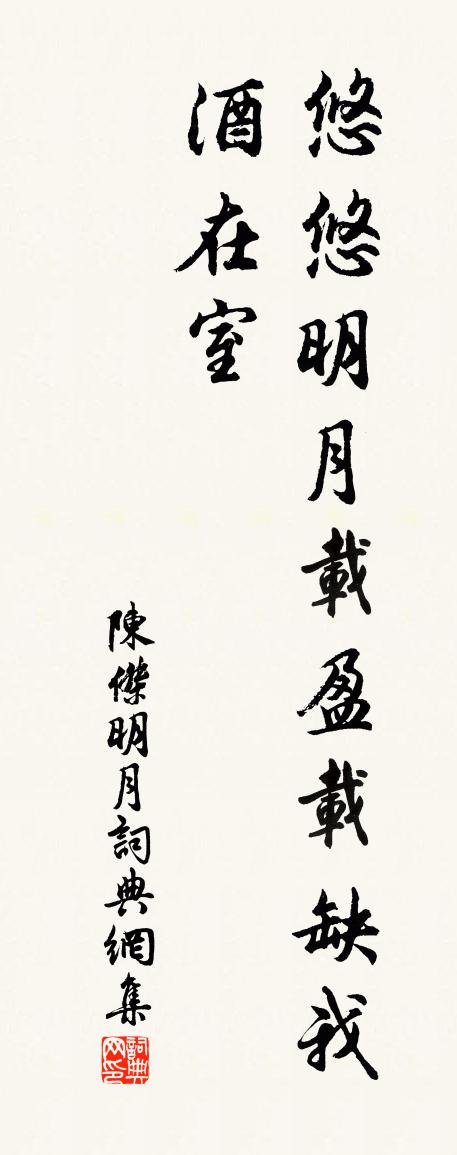 悠悠明月載盈載缺我
酒在室
陳傑明月詞典網集
詞典
网印